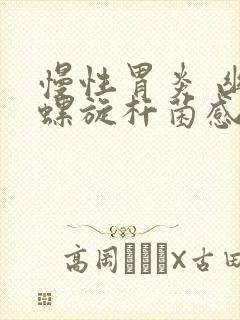 慢性胃炎
螺旋杆菌感
高岡
X古田